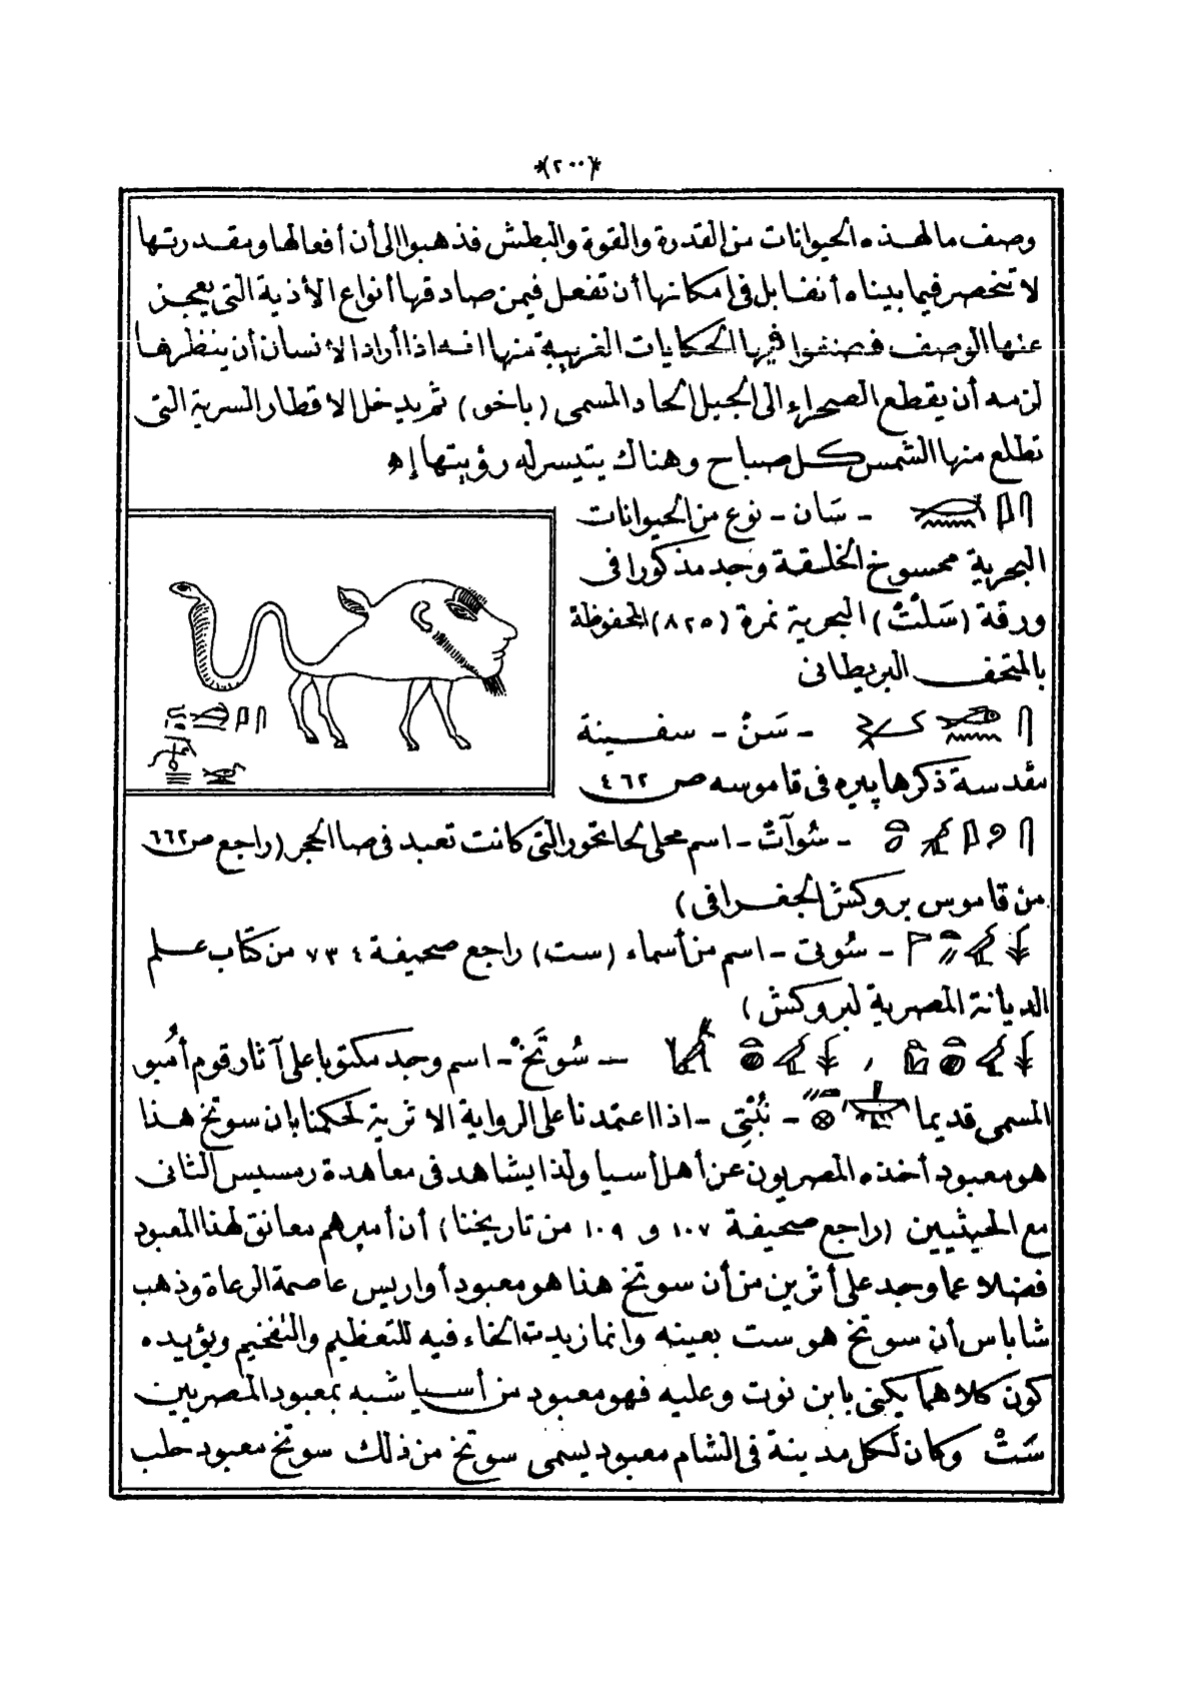 *(٢٠٠)*
وصف ما لهذه الحيوانات من القدرة والقوة والبطش فذهبوا الى أن أفعالها ومقدرتها
لا تنحصر فيما بيناه أنفا بل في إمكانها أن تفعل فيمن صادفها أنواع الأذية التي يعجز
عنها الوصف فصنفوا فيها الحكايات الغريبة منها انه اذا أراد الانسان أن ينظرها
لزمه أن يقطع الصحراء الى الجبل الحاد المسمى (باخو) ثم يدخل الاقطار السرية التي
تطلع منها الشمس كل صباح وهناك يتيسر له رؤيتها إه
- سَان - نوع من الحيوانات
البحرية ممسوخ الخلقة وجد مذكورا في
ورقة (سَلْتْ) البحرية نمرة (٨٢٥) المحفوظة
بالمتحف البريطاني
- سَنْ - سفينة
مقدسة ذكرها پيره في قاموسه ص ٤٦٢
- سُوآتْ - اسم محلي لحاتحور التي كانت تعبد في صا الحجر (راجع ص ٦٦٢
من قاموس بروكش الجغرافي)
- سُوتي - اسم من أسماء (ست) راجع صحيفة ٧٣٤ من كتاب علم
الديانة المصرية لبروكش)
، - سُوتَخْ - اسم وجد مكتوبا على آثار قوم أمبو
المسمى قديما - نُبْتِي - اذا اعتمدنا على الرواية الاثرية لحكمنا بان سوتخ هذا
هو معبود أخذه المصريون عن أهل أسيا ولذا يشاهد في معاهدة رمسيس الثاني
مع الحيثيين (راجع صحيفة ١٠٧ و ١٠٩ من تاريخنا) أن أميرهم معانق لهذا المعبود
فضلا عما وجد على أثرين من أن سوتخ هذا هو معبود أواريس عاصمة الرعاة وذهب
شاباس أن سوتخ هو ست بعينه وانما زيدت الخاء فيه للتعظيم والتفخيم ويؤيده
كون كلاهما يكنى بابن نوت وعليه فهو معبود من أسيا شبه بمعبود المصريين
سَتْ وكان لكل مدينة في الشام معبود يسمى سوتخ من ذلك سوتخ معبود حلب